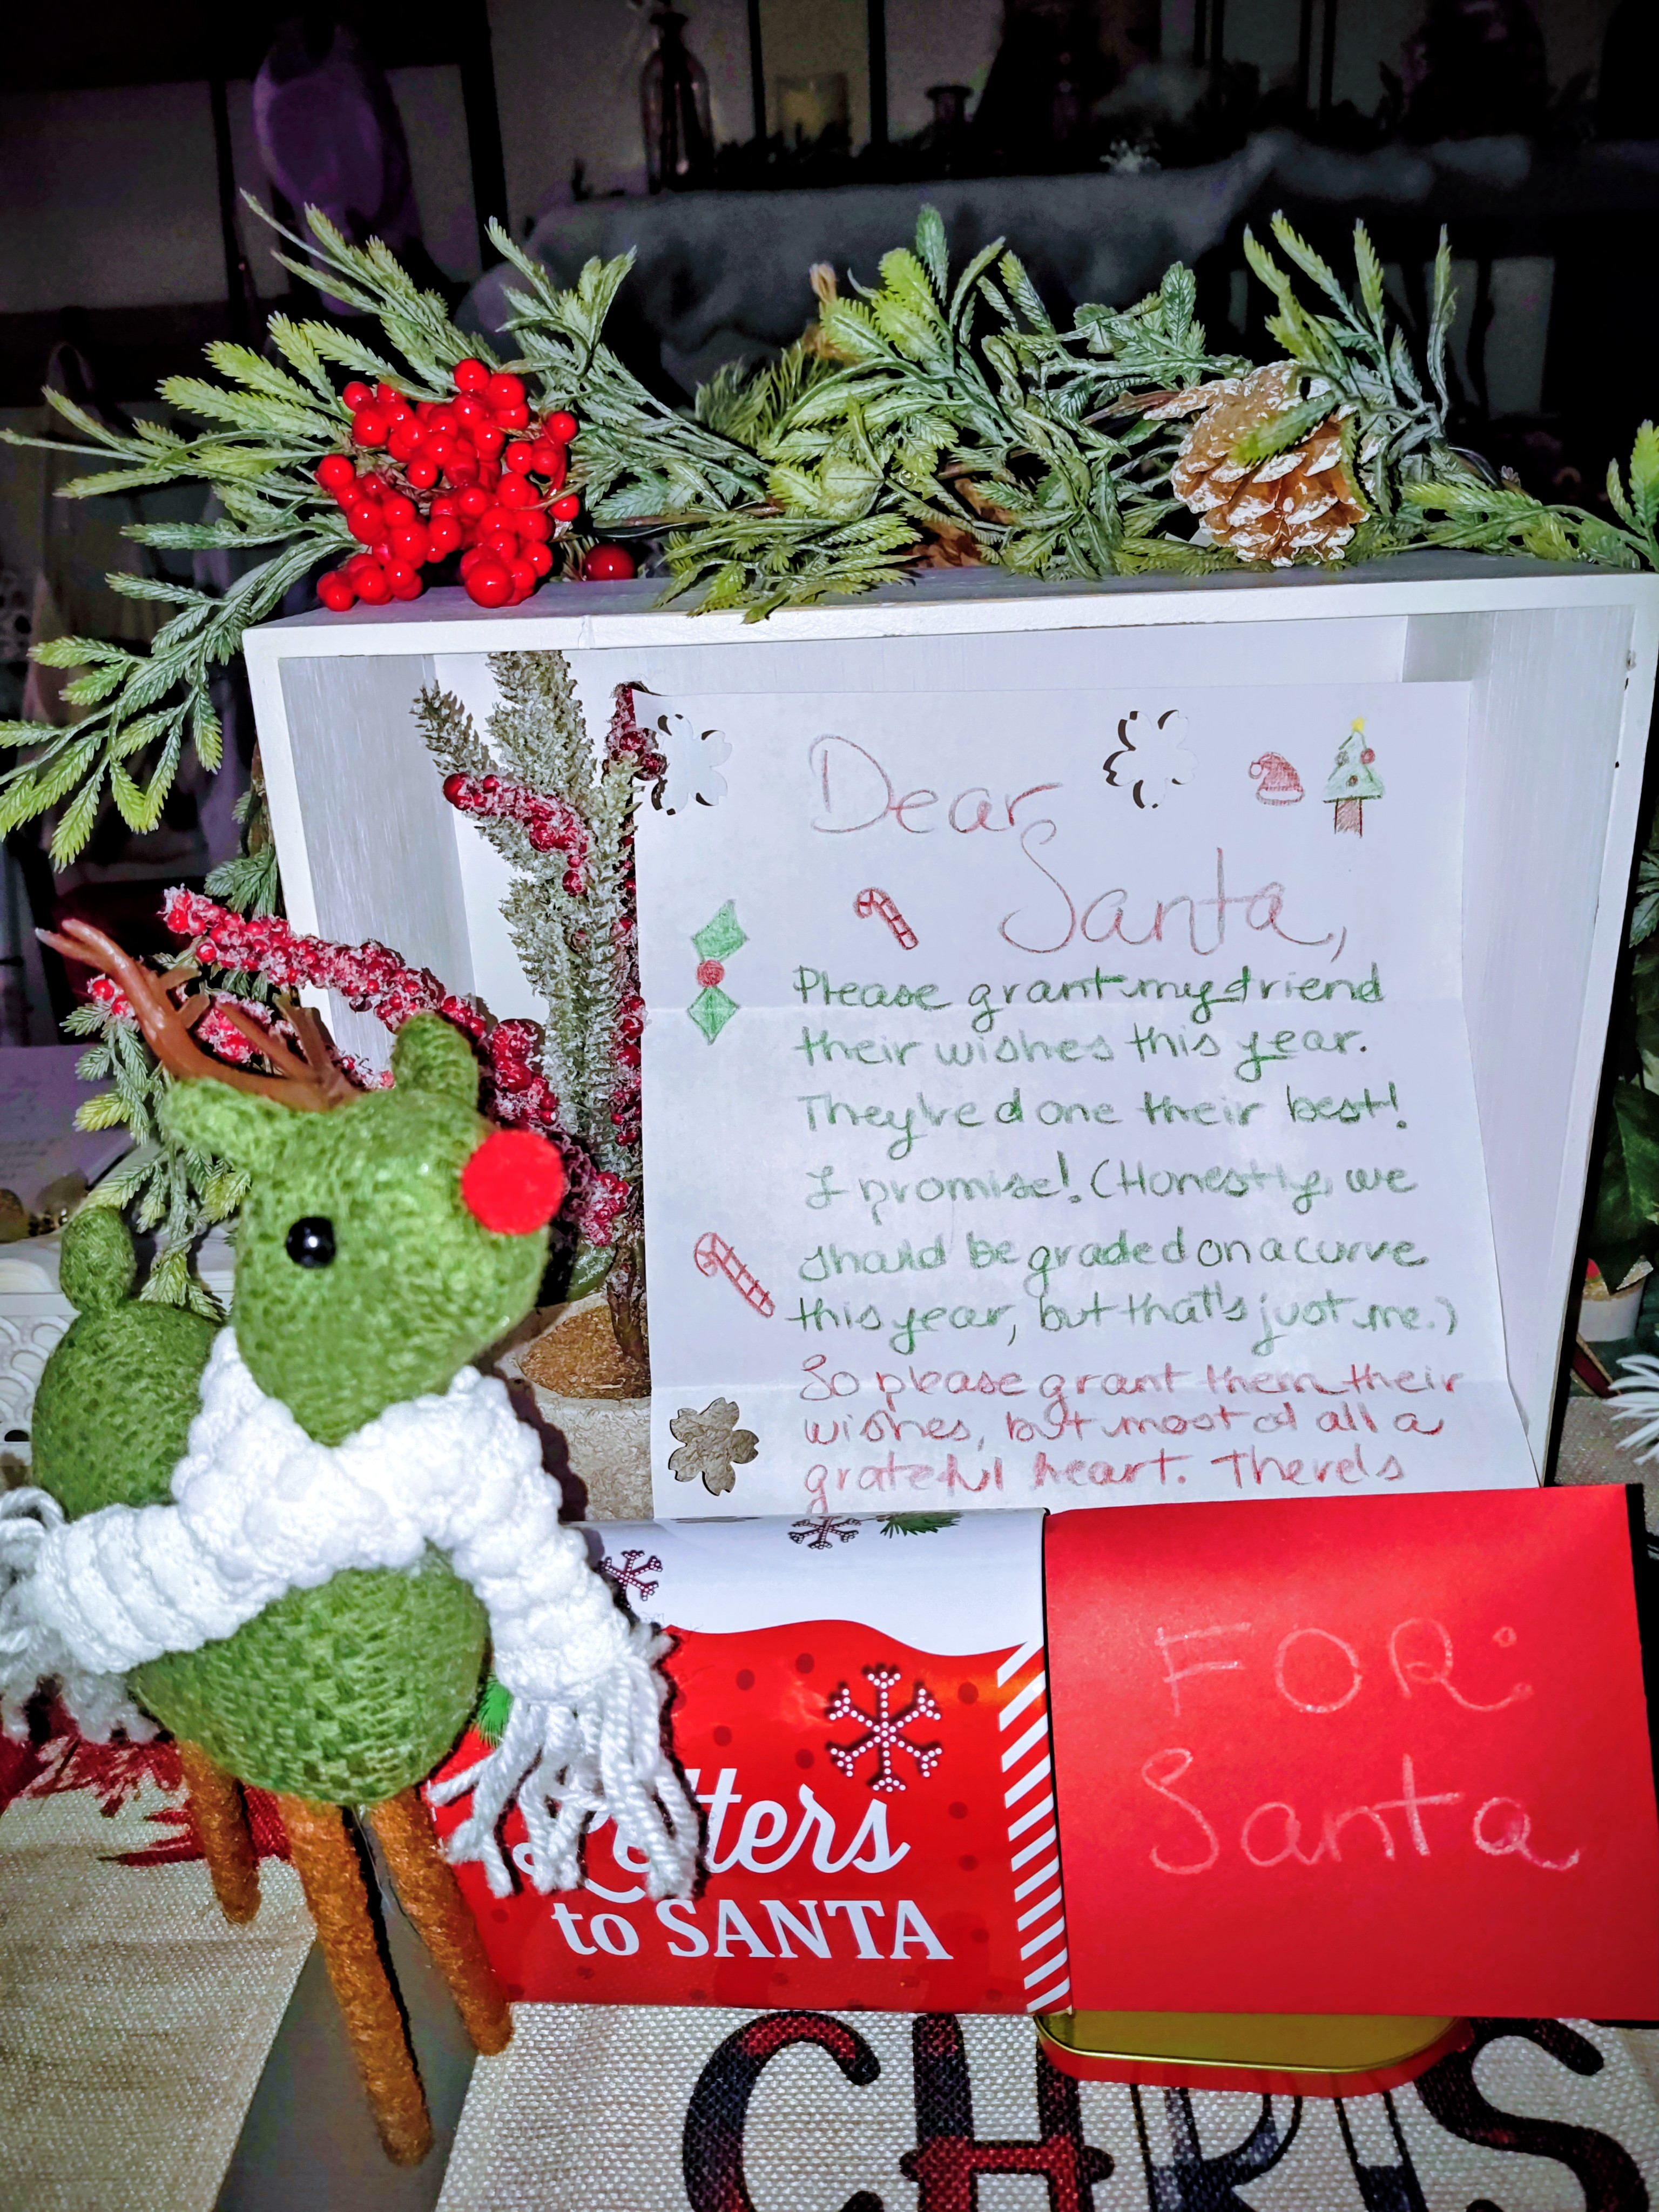 Dear
Santa,
Please grant my friend
their wishes this year.
They've done their best!
I promise! (Honestly, we
should be graded on a curve
this year, but that's just me.)
So please grant them their
wishes, but most of all a
grateful heart. There's
Letters
to SANTA
FOR:
Santa
CHRIS